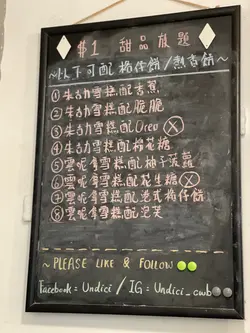 $1 甜品放題
~以下可配格仔餅/熱香餅~
① 朱古力雪糕配香蕉
② 朱古力雪糕配脆脆
③ 朱古力雪糕配Oreo ⓧ
④ 朱古力雪糕配棉花糖
⑤ 雲呢拿雪糕配柚子菠蘿
⑥ 雲呢拿雪糕配花生糖 ⓧ
⑦ 雲呢拿雪糕配港式格仔餅
⑧ 雲呢拿雪糕配泡芙
~ PLEASE LIKE & FOLLOW
Facebook = Undici / IG = Undici_cwb